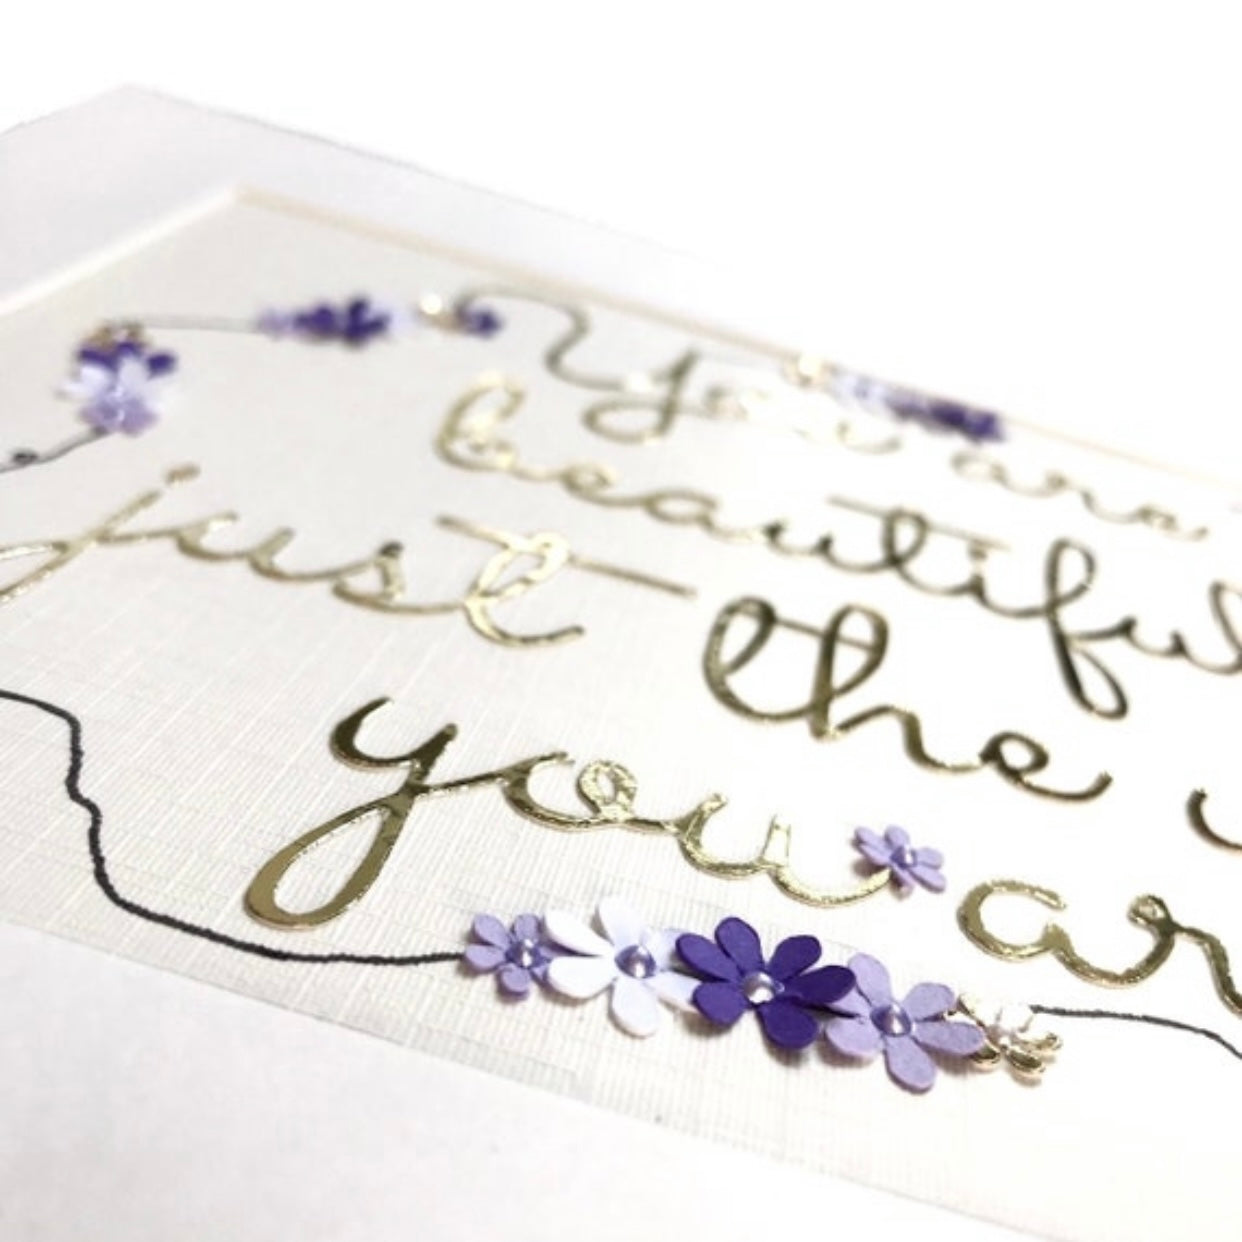 You are
beautiful
just the
you ar